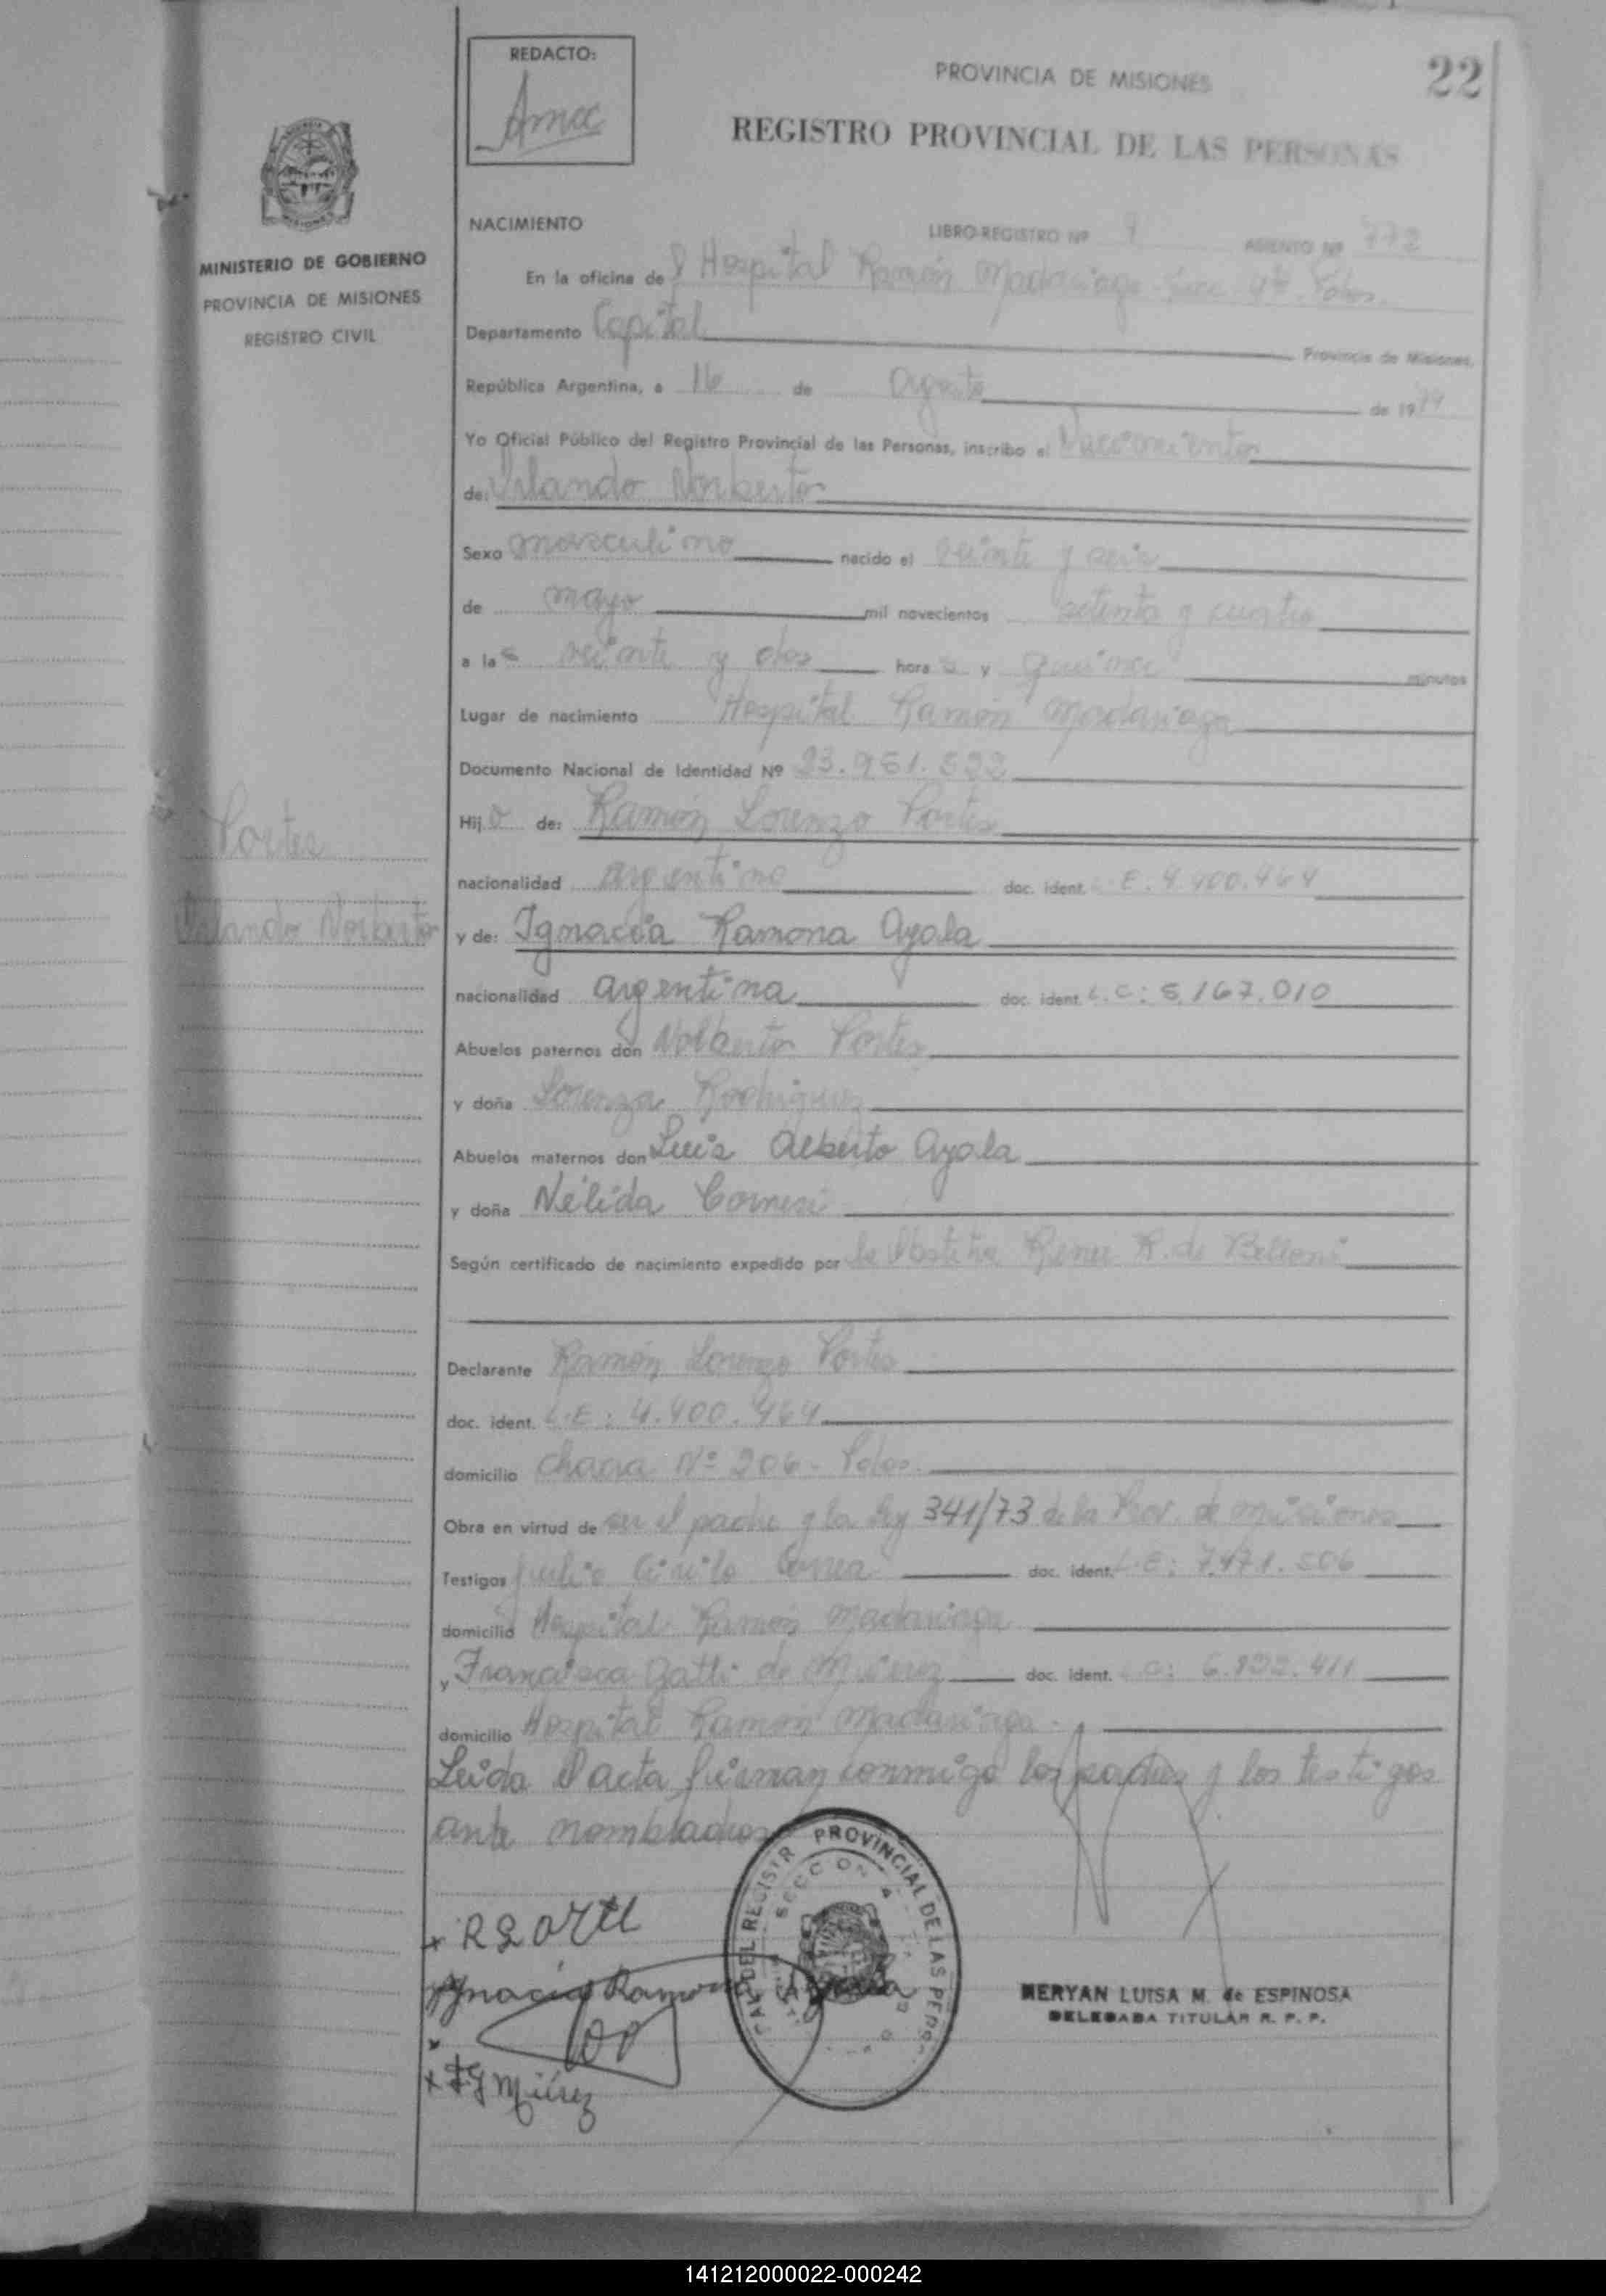 REDACTO:
PROVINCIA DE MISIONES
22
REGISTRO PROVINCIAL DE LAS PERSONAS
MINISTERIO DE GOBIERNO
PROVINCIA DE MISIONES
REGISTRO CIVIL
NACIMIENTO LIBRO-REGISTRO Nº ASIENTO Nº 772
En la oficina del Hospital Ramón Madariaga Secc. 4ta. Pdas.
Departamento Capital Provincia de Misiones,
República Argentina, a 16 de Agosto de 1974
Yo Oficial Público del Registro Provincial de las Personas, inscribo el Nacimiento
de: Orlando Norberto
Sexo masculino nacido el veinte y seis
de mayo mil novecientos setenta y cuatro
a las veinte y dos horas y quince minutos
Lugar de nacimiento Hospital Ramón Madariaga
Documento Nacional de Identidad Nº 23.951.522
Hijo de: Ramón Lorenzo Portes
Portes
nacionalidad argentino doc. ident. L.E. 4.400.464
Orlando Norberto
y de: Ignacia Ramona Ayala
nacionalidad argentina doc. ident. L.C: 5.167.010
Abuelos paternos don Norberto Portes
y doña Lorenza Rodriguez
Abuelos maternos don Luis Alberto Ayala
y doña Nélida
Según certificado de nacimiento expedido por la Obstetra R. de Belloni
Declarante Ramón Lorenzo Portes
doc. ident. L.E: 4.400.464
domicilio chacra Nº 206 - Pdas.
Obra en virtud de ser el padre y la ley 341/73 de la Prov. de Misiones
Testigos Julio Cirilo Correa doc. ident. L.E: 7.471.506
domicilio Hospital Ramón Madariaga
y Francisca Gatti de Miérez doc. ident. L.C: 6.822.411
domicilio Hospital Ramón Madariaga
Leida el acta firman conmigo los padres y los testigos
ante nombrados
Ignacia Ramona Ayala
FG Miérez
REGISTR PROVINCIAL DE LAS PERS
SECCION 4
MERYAN LUISA M. de ESPINOSA
DELEGADA TITULAR R. P. P.
141212000022-000242